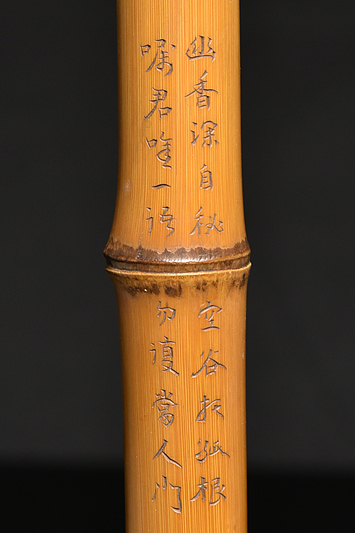 幽香深自秘空谷托孤根
嘱君唯一語勿復當人門